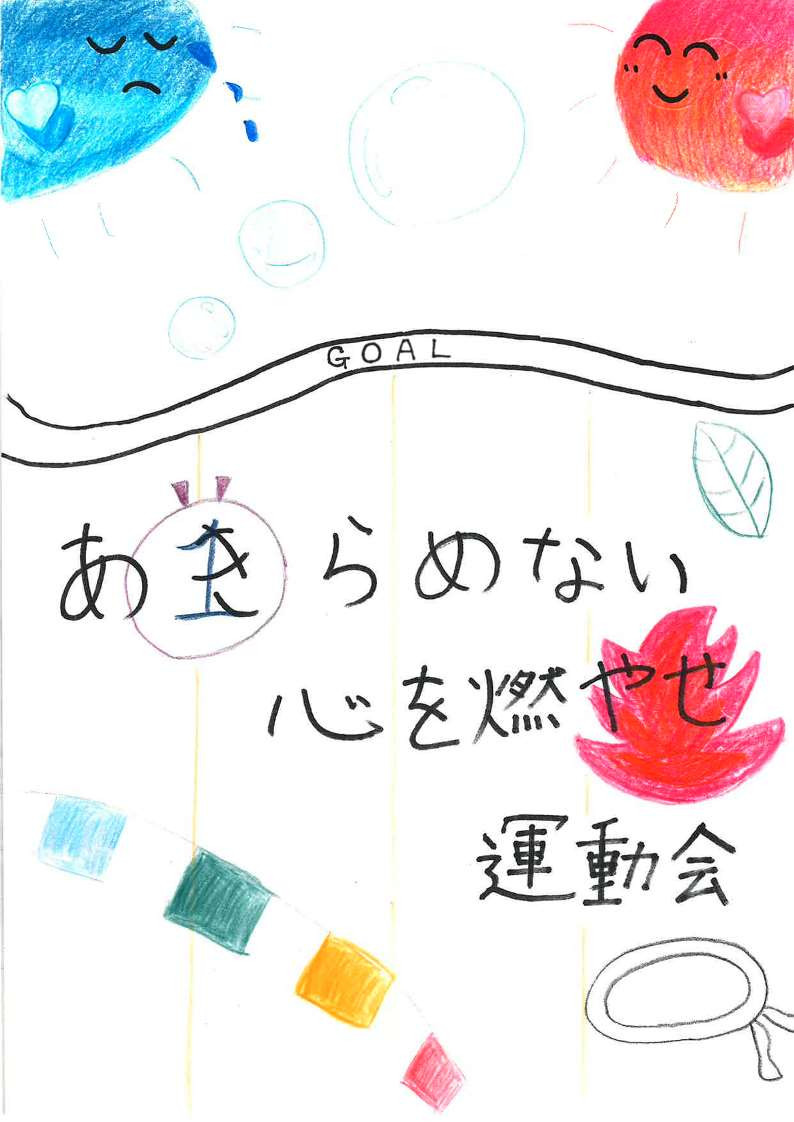 GOAL
1
あきらめない
心を燃やせ
運動会